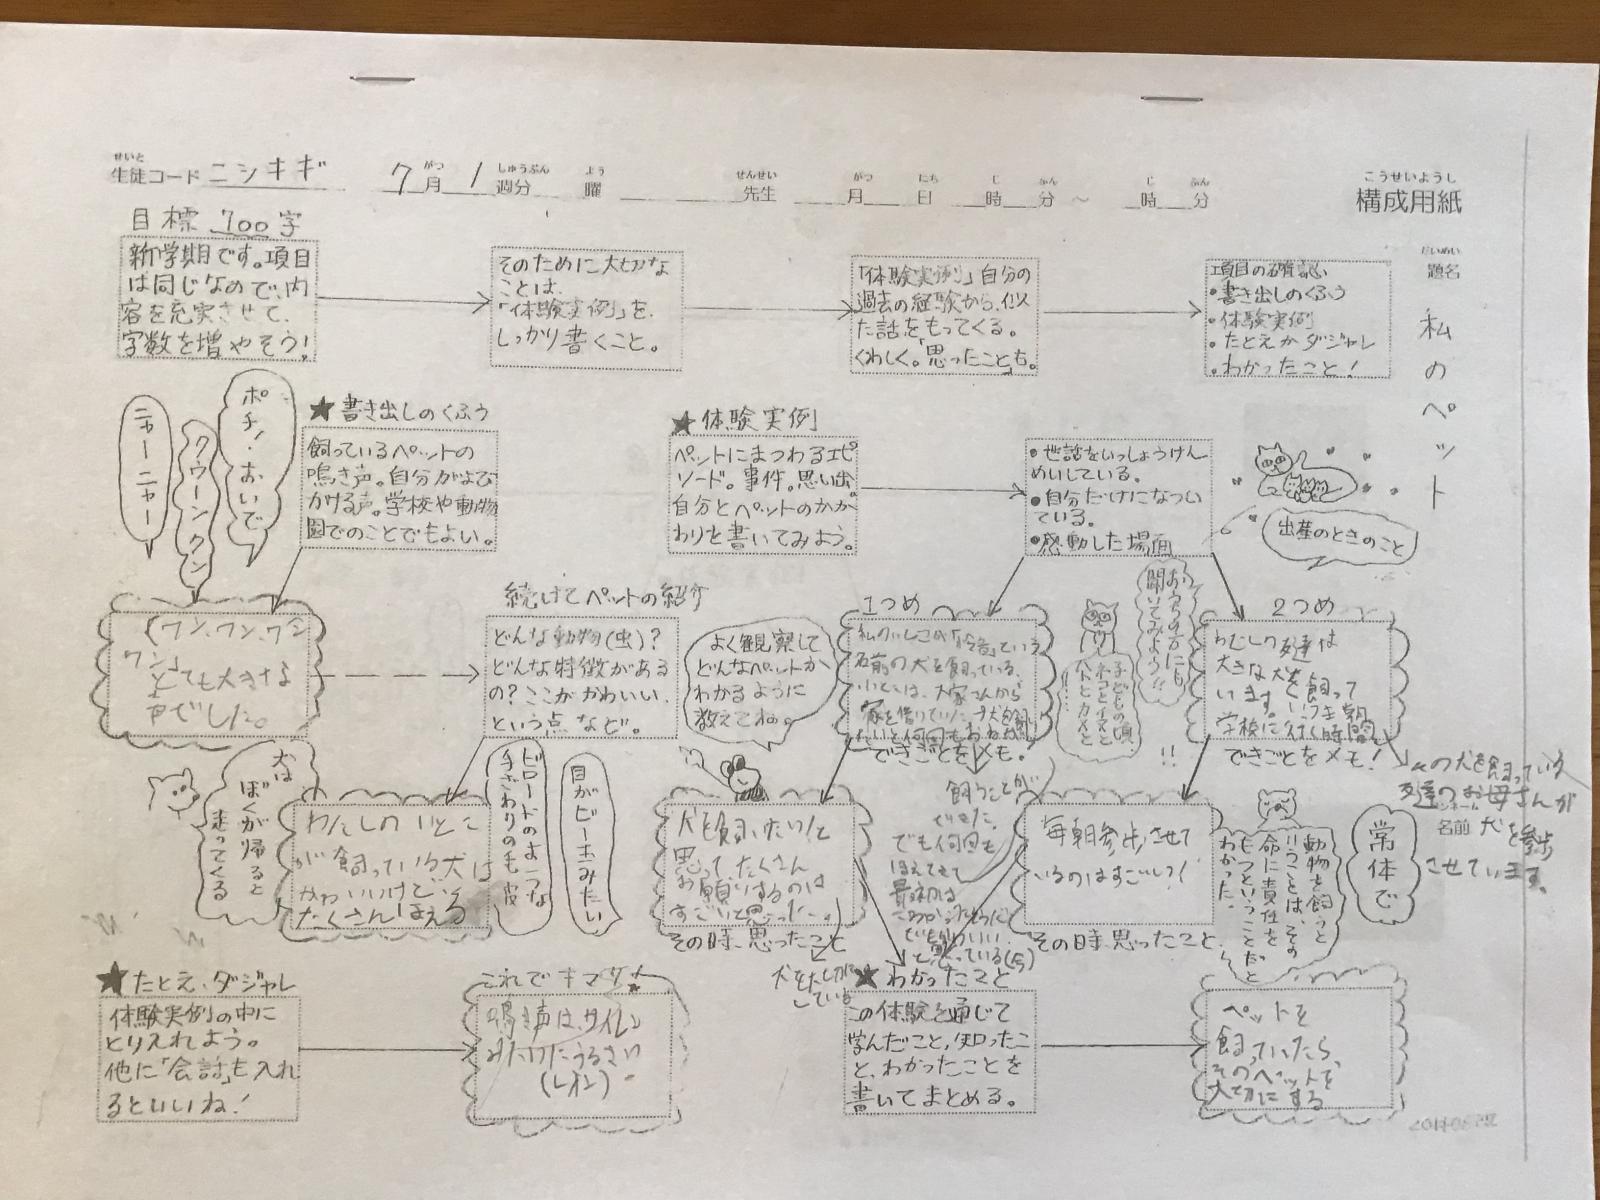 生徒コード ニシキギ 7月 1週分 曜 先生 月 日 時 分 ～ 時 分
せいと がつ しゅうぶん よう せんせい がつ にち じ ふん じ ふん
こうせいようし
構成用紙
だいめい
題名
私のペット
目標 700字
新学期です。項目
は同じなので、内
容を充実させて、
字数を増やそう!
そのために大切な
ことは、
「体験実例」を、
しっかり書くこと。
「体験実例」自分の
過去の経験から、似
た話をもってくる。
くわしく。「思ったこと」も。
項目の確認
・書き出しのくふう
・体験実例
・たとえかダジャレ
・わかったこと!
ニャーニャー
クウーンクン
ポチ!おいで
★書き出しのくふう
飼っているペットの
鳴き声。自分がよび
かける声。学校や動物
園でのことでもよい。
★体験実例
ペットにまつわるエピ
ソード。事件。思い出。
自分とペットのかか
わりを書いてみよう。
・世話をいっしょうけん
めいしている。
・自分だけになつい
ている。
・感動した場面
出産のときのこと
「ワン、ワン、ワン
ワン」
とても大きな
声でした。
続けてペットの紹介
どんな動物(虫)?
どんな特徴がある
の?ここがかわいい、
という点など。
よく観察して
どんなペットか
わかるように
教えてね。
1つめ
私のいとこが
という
名前の犬を飼っている。
いとこは、大家さんから
家を借りていた
できごとをメモ!
お家の方にも
聞いてみよう!!
子どもの頃
ネコとイヌと
ハトとカメと
……!!
2つめ
わたしの友達は
大きな犬を飼って
います。いつも朝
学校に行く時間
できごとをメモ!
その犬を飼っている
友達のお母さんが
犬を参歩
させています。
ネーム
名前
常体で
犬は
ぼくが帰ると
走ってくる
わたしのいとこ
が飼っている犬は
かわいいけど
たくさんほえる
ビロードのような
手ざわりの毛皮
目がビー玉みたい
犬を飼いたい!と
思って、たくさん
お願いするのは
すごいと思った。
その時、思ったこと
飼うことが
できた。
でも何回も
ほえてきて
最初は
でもかわいい
と思っている
犬を
している
毎朝参歩させて
いるのはすごいっ!
その時、思ったこと、
動物を飼うと
いうことは、その
命に責任を
もつということだと
わかった。
★たとえ、ダジャレ
体験実例の中に
とりいれよう。
他に「会話」も入れ
るといいね!
これでキマリ!
鳴き声は、サイレン
みたいにうるさい
(レオン)
★わかったこと
この体験を通じて
学んだこと、知ったこ
と、わかったことを
書いてまとめる。
ペットを
飼っていたら、
そのペットを
大切にする